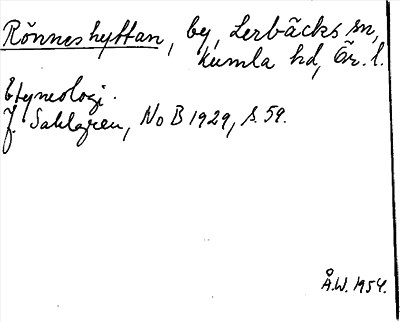 Rönneshyttan, by, Lerbäcks sn,
Kumla hd, Ör. l.
Etymologi.
J. Sahlgren, No B 1929, s. 59.
Å.W. 1954.